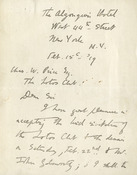 The Algonquin Hotel
West 44th Street
New York
N.Y.
Feb. 15th '19
Chas. W. Price Esq.
The Lotos Club
Dear Sir
I have great pleasure in
accepting the kind invitation of
the Lotos Club to the dinner
on Saturday, Feb. 22nd to Mr
John Galsworthy; I shall be